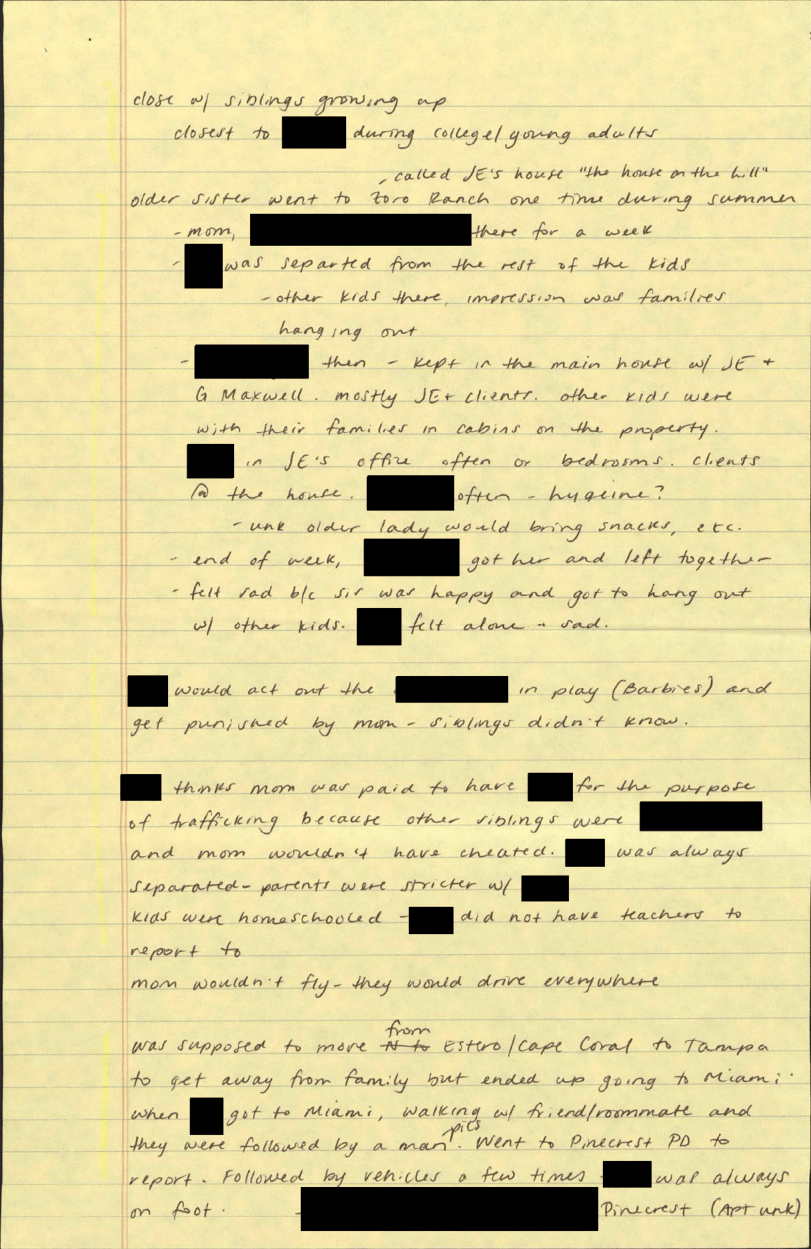 close w/ siblings growing up
closest to during college/young adults
, called JE's house "the house on the hill"
older sister went to Zoro Ranch one time during summer
- mom, there for a week
- was separted from the rest of the kids
- other kids there, impression was families
hanging out
- then - kept in the main house w/ JE +
G Maxwell. mostly JE + clients. other kids were
with their families in cabins on the property.
in JE's office often or bedrooms. clients
@ the house. often - hygeine?
- unk older lady would bring snacks, etc.
- end of week, got her and left together
- felt sad b/c sis was happy and got to hang out
w/ other kids. felt alone - sad.
would act out the in play (Barbies) and
get punished by mom - siblings didn't know.
thinks mom was paid to have for the purpose
of trafficking because other siblings were
and mom wouldn't have cheated. was always
separated - parents were stricter w/
kids were homeschooled - did not have teachers to
report to
mom wouldn't fly - they would drive everywhere
from
was supposed to move N to Estero/Cape Coral to Tampa
to get away from family but ended up going to Miami.
when got to Miami, walking w/ friend/roommate and
pics
they were followed by a man. Went to Pinecrest PD to
report. Followed by vehicles a few times was always
on foot. - Pinecrest (Apt unk)